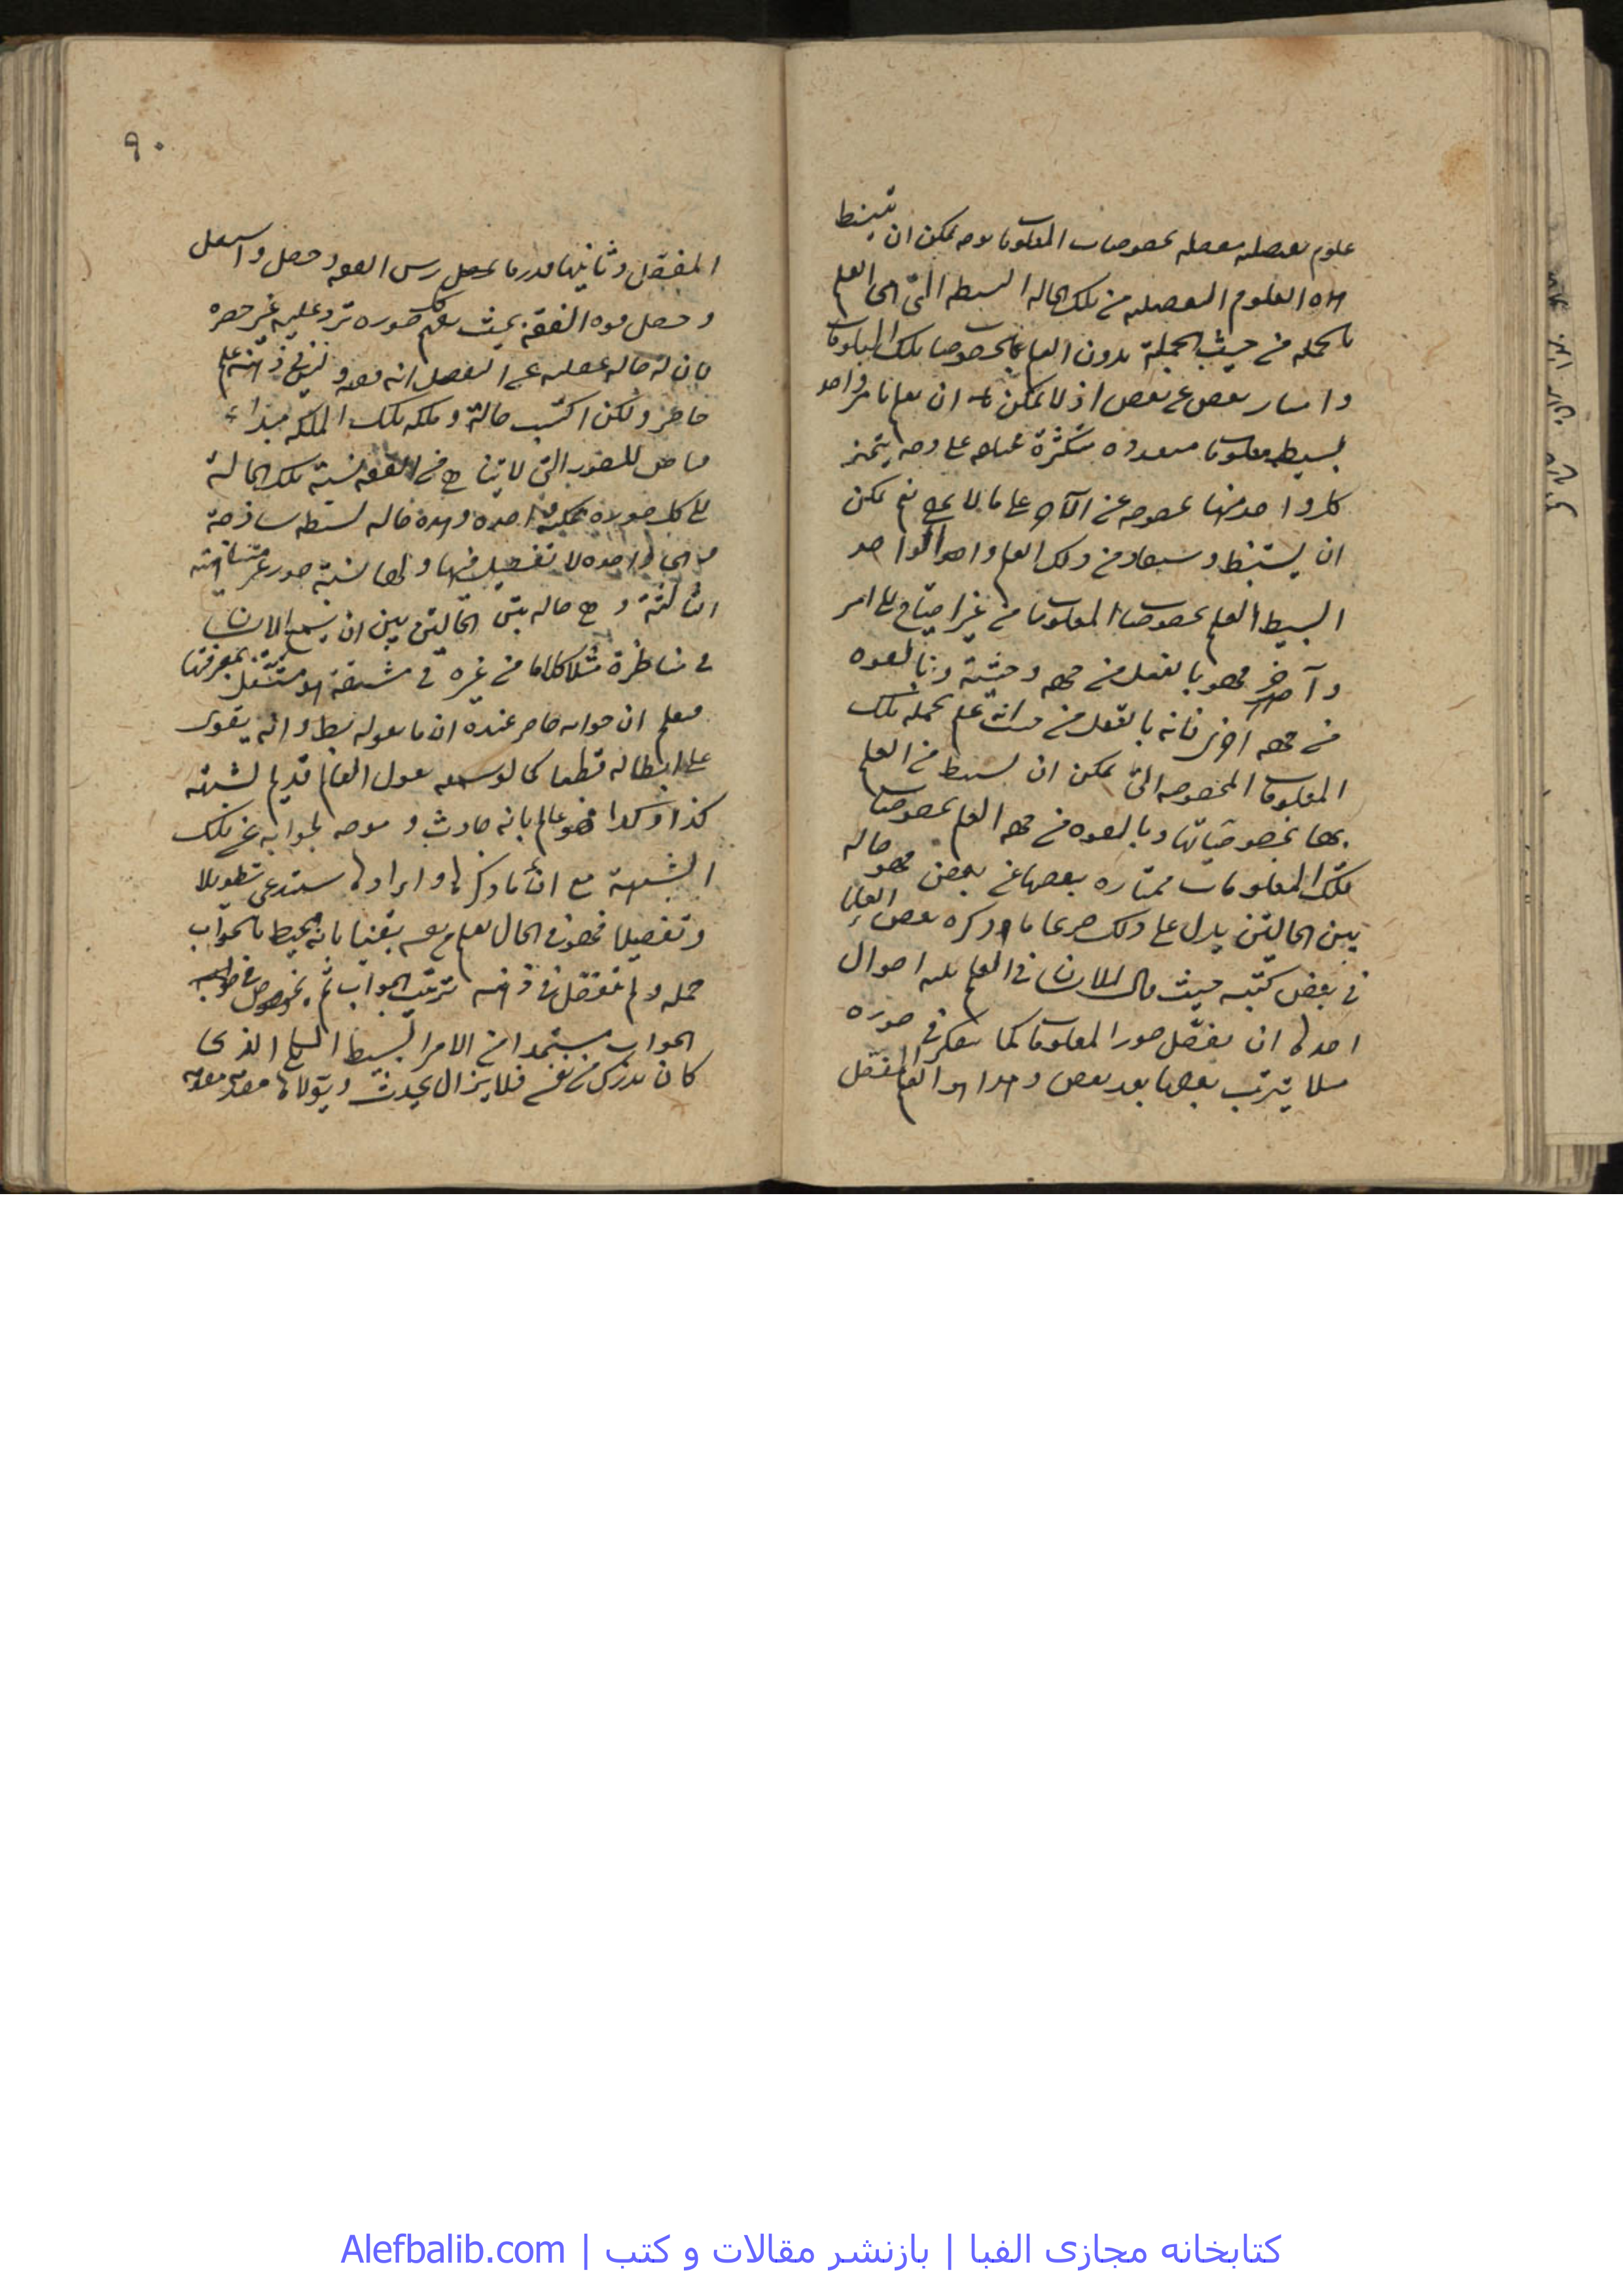 علوم تفصيليه مفصله بخصوصيات المعلومات بوجه يمكن ان يستنبط
هذه العلوم التفصيليه من تلك الحاله البسيطه التى هى العلم
بالجمله من حيث الجملة بدون العلم بخصوصيات تلك المعلومات
وامتياز بعض عن بعض اذ لا يمكن ان يعلم بامر واحد
بسيط معلومات متعدده متكثرة على وجه يتميز
كل واحد منها بخصوصه عن الآخر على ما لا يخفى نعم يمكن
ان يستنبط ويستفاد من ذلك العلم الواحد
البسيط العلم بخصوصيات المعلومات من غير احتياج الى امر
آخر فهو بالفعل من جهه وحيثية وبالقوه
من جهه اخرى فانه بالفعل من حيث انه علم بجمله تلك
المعلومات المخصوصه التى يمكن ان يستنبط من العلم
بها بخصوصياتها وبالقوه من جهه العلم بخصوصيات
تلك المعلومات ممتازه بعضها عن بعض فهو حاله
بين الحالتين يدل على ذلك صريحا ما ذكره بعض العلماء
فى بعض كتبه حيث قال للانسان فى العلم ثلثه احوال
احدها ان يفصّل صور المعلومات كما يتفكر فى صوره
مثلا يترتب بعضها بعد بعض وهذا هو العلم المفصّل
٩٠
المفصّل وثانيها من درس الفقه وحصل واستعمل
وحصل قوه الفقه بحيث يعلم كل صوره ترد عليه غير حصره
فان له حاله عند التفصيل انه فقيه وليس فى ذهنه علم
حاضر ولكن اكتسب حالة وملكه تلك الملكه مبداء
فياض للصور التى لا يتناهى من الفقه نسبة تلك الحالة
الى كل صوره ممكنه واحده وهذه حاله بسيطه ساذجة
هى واحده لا تفصيل فيها ولها نسبة صور غير متناهية
الثالثة وهى حاله بين الحالتين بين ان يسمع الانسان
فى مناظرة مثلا كلاما من غيره فى شبهة هو مستقل بمعرفتها
فيعلم ان جوابه حاضر عنده ان ما يقوله باطل وانه يقوى
على ابطاله قطعا كما لو سمعه يقول العالم قديم لشبهة
كذا وكذا فهو عالم بانه حادث وبوجه الجواب عن تلك
الشبهة مع ان ذكرها وايرادها يستدعى تطويلا
وتفصيلا فهو فى الحال يعلم من نفسه يقينا بانه يحيط بالجواب
جمله ولم يتفصل فى ذهنه ترتيب الجواب ثم يخوض فى
الجواب مستمدا من الامر البسيط الكلى الذى
كان يدركه من نفسه فلا يزال يحدث ويتولاها مقدمه مقدمه
کتابخانه مجازی الفبا | بازنشر مقالات و کتب | Alefbalib.com